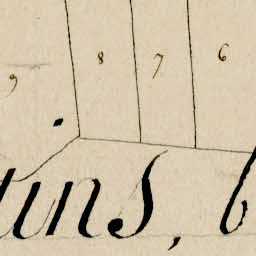 9 8 7 6
ins, b